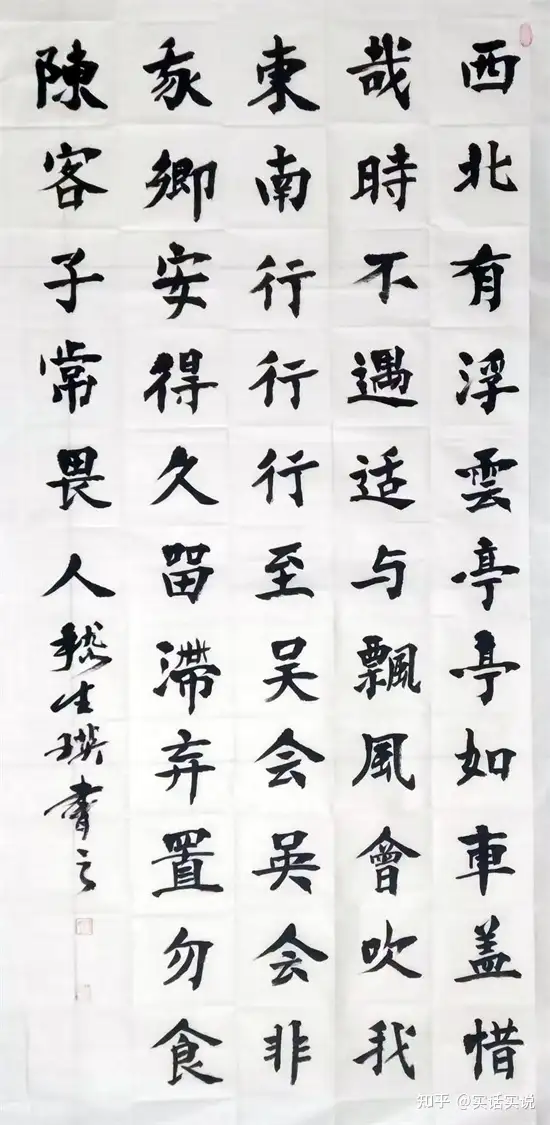 西北有浮雲亭亭如車盖惜
哉時不遇适与飄風會吹我
東南行行行至吴会吴会非
卿安得久留滞弃置勿食
陳客子常畏人
知乎 @实话实说